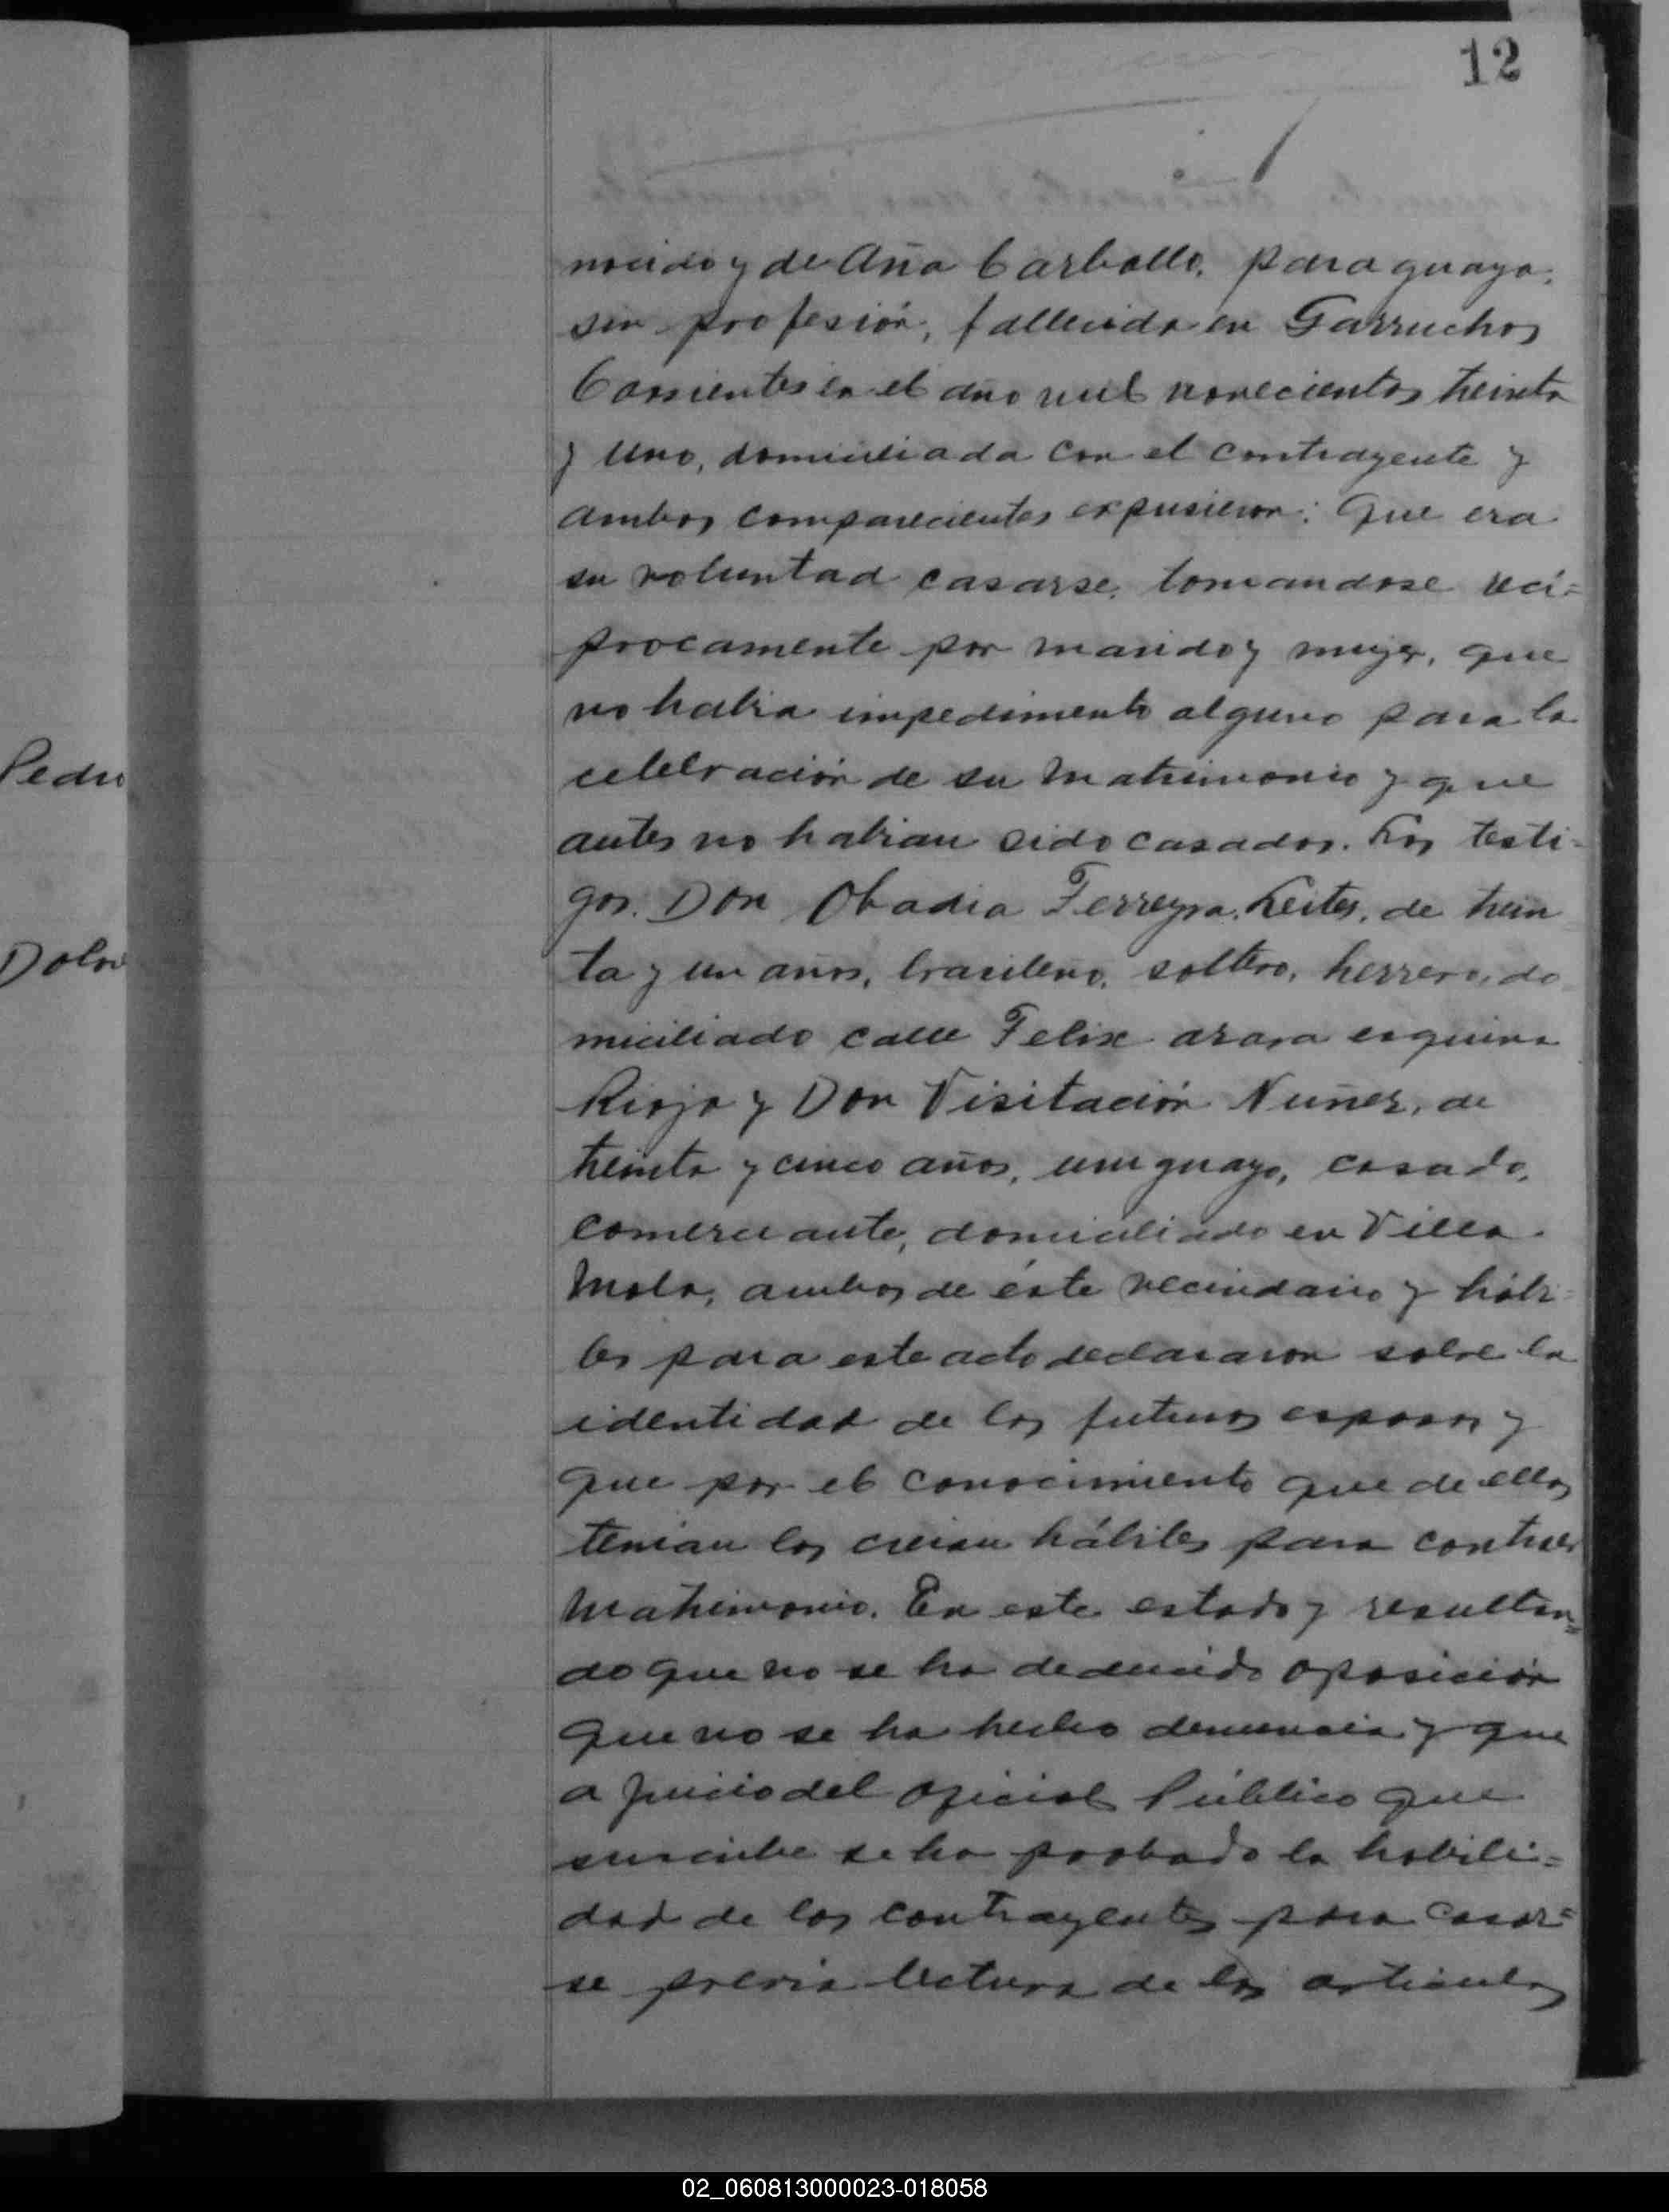 12
nocido y de Aña Carballo, paraguaya,
sin profesión, fallecida en Garruchos
Corrientes en el año mil novecientos treinta
y uno, domiciliada con el contrayente y
ambos comparecientes expusieron: Que era
su voluntad casarse, tomandose reci=
procamente por marido y mujer, que
no habia impedimento alguno para la
celebración de su matrimonio y que
antes no habian sido casados. Los testi=
gos. Don Obadia Ferreyra Leites, de trein
ta y un años, brasileño, soltero, herrero, do
miciliado calle Felix azara esquina
Rioja y Don Visitación Nuñez, de
treinta y cinco años, uruguayo, casado,
comerciante, domiciliado en Villa
Mola, ambos de éste vecindario y hábi=
les para este acto declararon sobre la
identidad de los futuros esposos y
que por el conocimiento que de ellos
tenian los creian hábiles para contraer
matrimonio. En este estado y resultan=
do que no se ha deducido oposición
que no se ha hecho denuncia y que
a juicio del oficial Público que
suscribe se ha probado la habili=
dad de los contrayentes para casar=
se previa lectura de los articulos
Pedro
Dolo
02_060813000023-018058